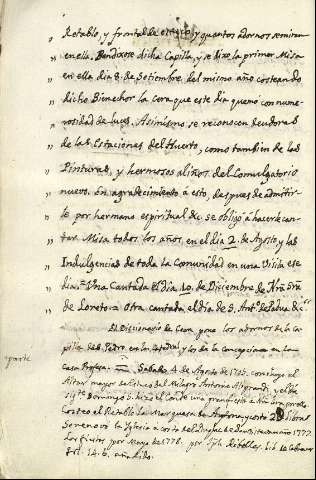 „ Retablo, y frontal de espejo, y quantos adornos se miran
„ en ella. Bendixose dicha Capilla, y se dixo la primer Misa
„ en ella dia 8. de Setiembre del mismo año costeando
„ dicho Bienechor la cera que este dia quemó con nume-
„ rosidad de luces. Asimismo se reconocen deudoras
„ de las Estaciones del Huerto, como tambien de las
„ Pinturas, y hermosos aliños del Comulgatorio
„ nuevo. En agradecimiento a esto, despues de admitir-
„ le por hermano espiritual &c. se obligó a hacerle can-
„ tar Misa todos los años en el dia 2. de Agosto, y las
„ Indulgencias de toda la Comunidad en una Visita ese
„ dia. Una Cantada el dia 10. de Diciembre de Ntra. Sra.
„ de Loreto: y Otra cantada el dia de S. Antº. de Padua &c.
El Diccionario de Cean pone los adornos de la ca-
pilla de S. Pedro en la Catedral y los de la Concepcion en la
Casa Profesa. Sabado 4 de Agosto de 1725. concluyo el
parte
Altar mayor
y el dia
sigte. Domingo 5. hizo el Conde una gran fiesta a
Costeó el Retablo la Marquesa de
Se renovó la Iglesia a costa del
año 1777.
por Mayo de 1778. por
fol. 14. b. añadido.